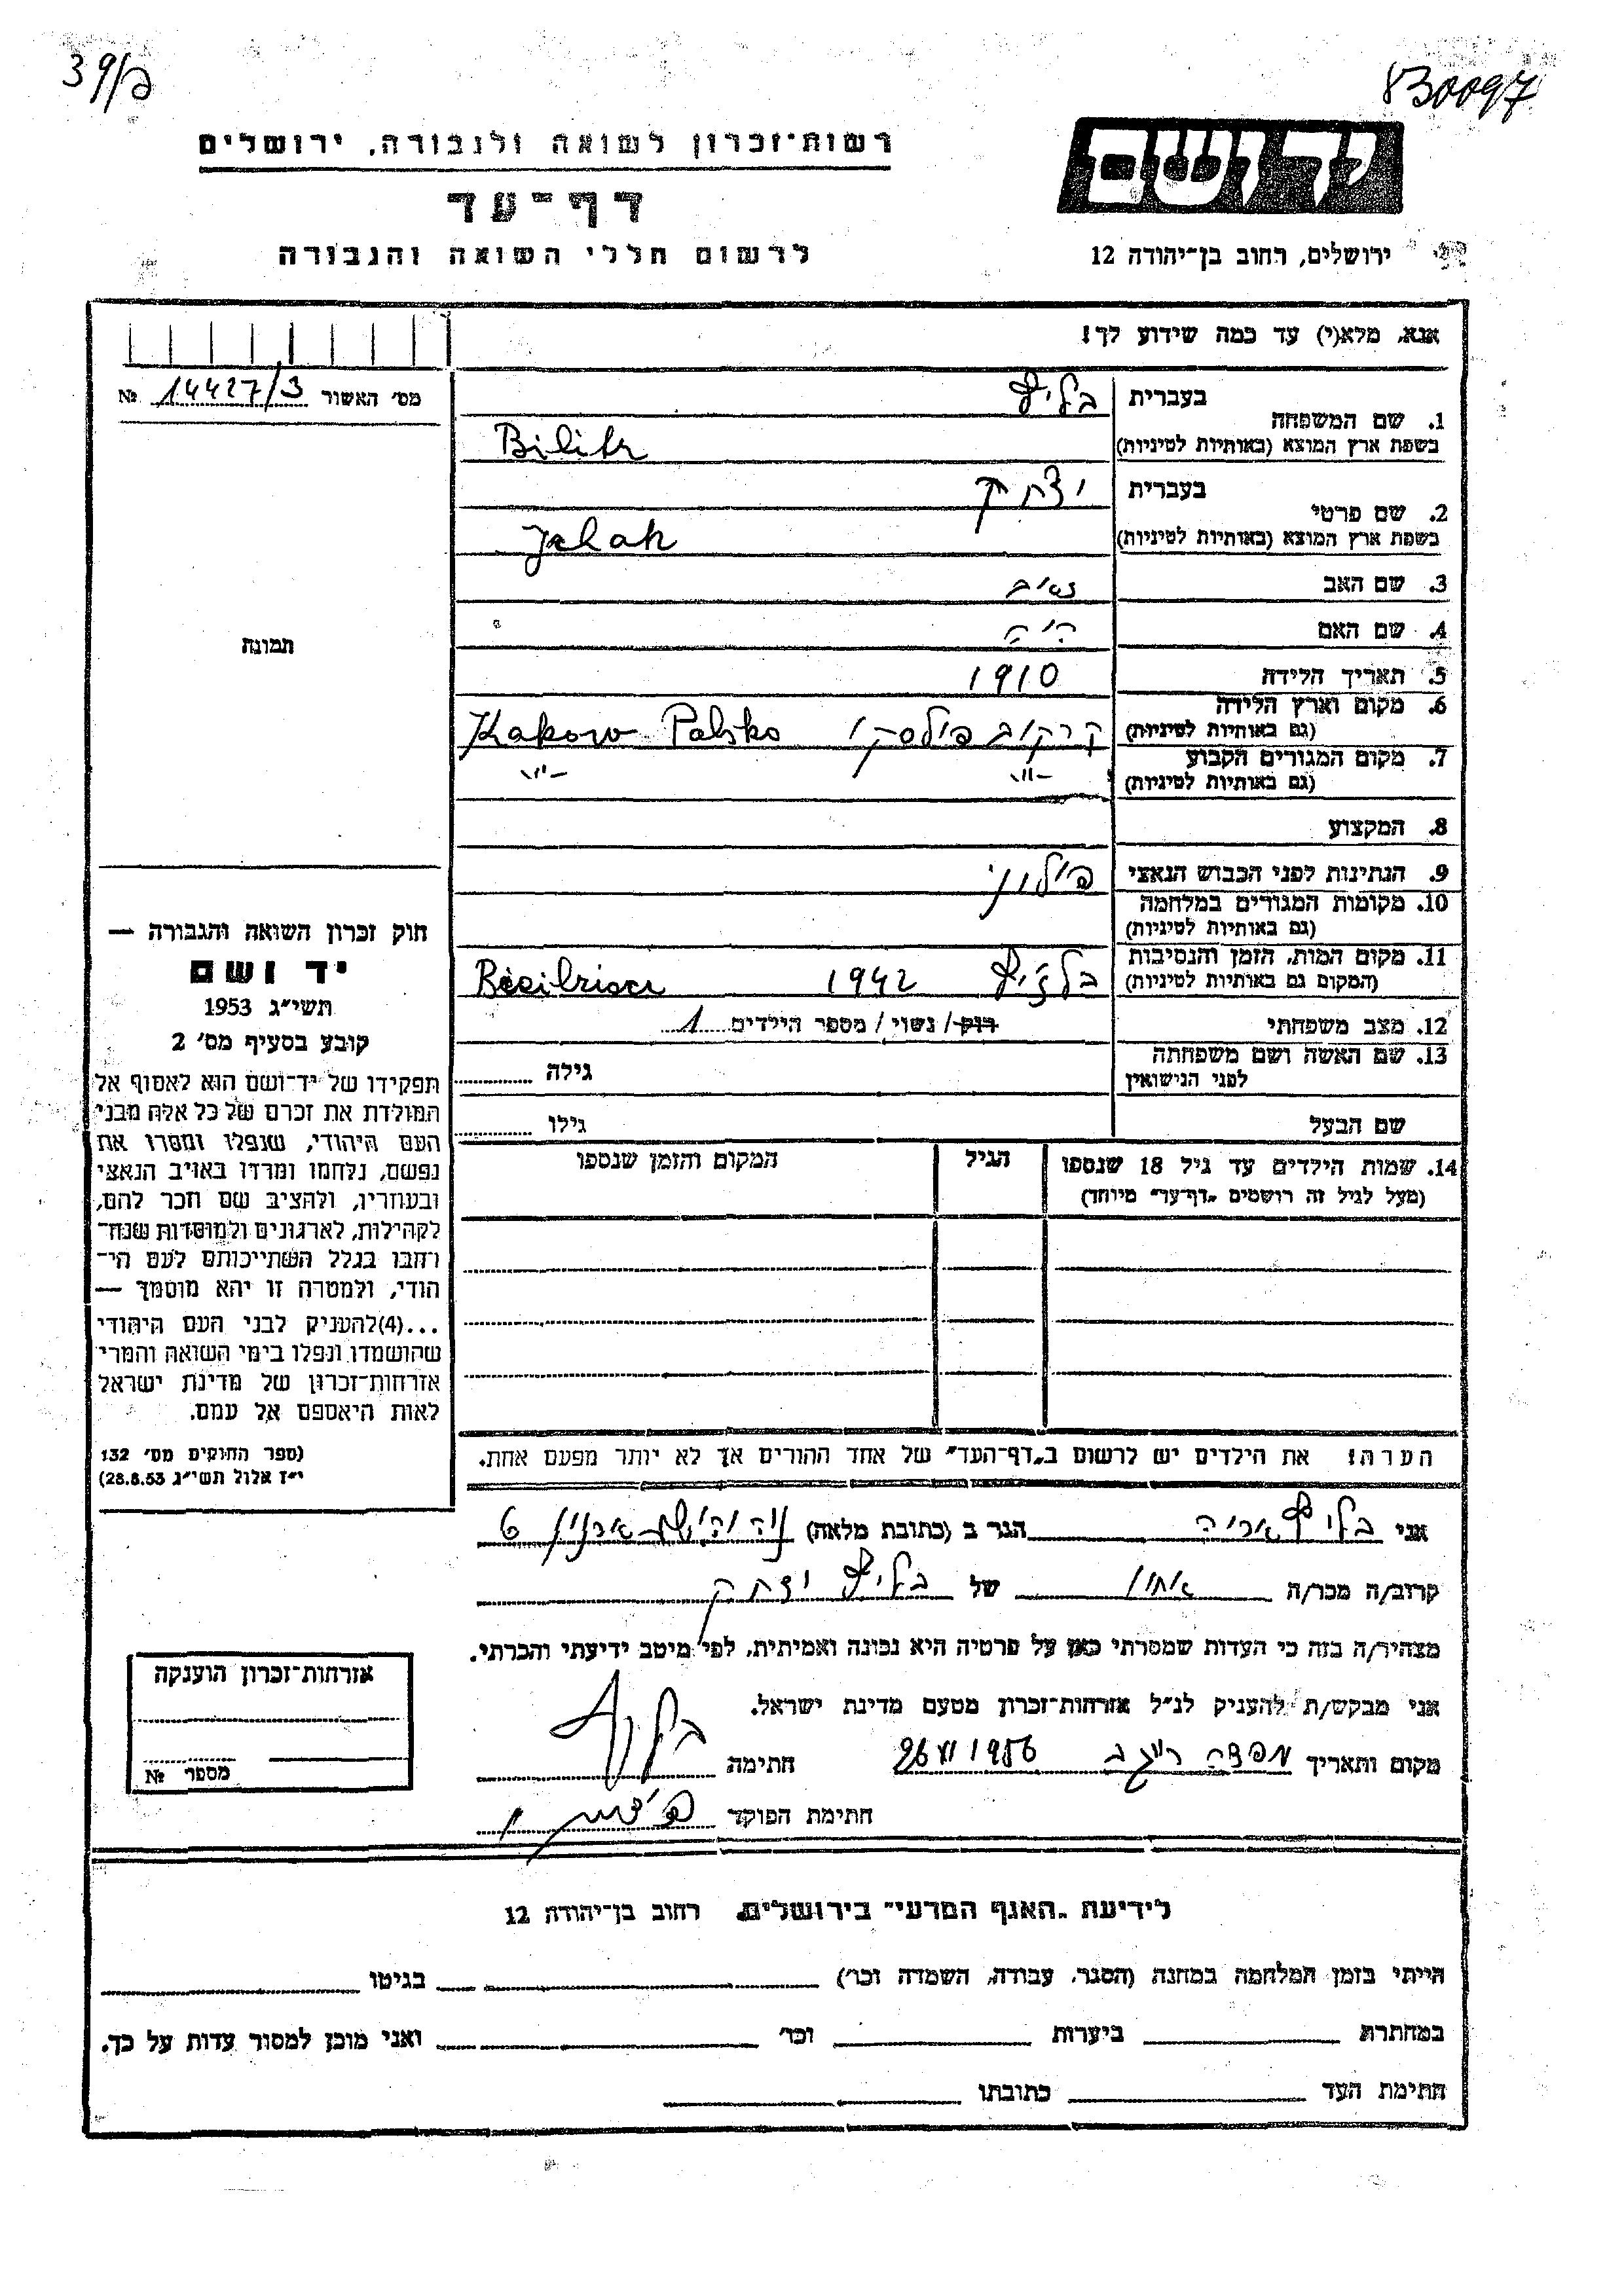 39/פ
830097
רשות־זכרון לשואה ולגבורה, ירושלים
דף־עד
לרשום חללי השואה והגבורה
יד ושם
ירושלים, רחוב בן־יהודה 12
אנא, מלא(י) עד כמה שידוע לך!
מס׳ האשור 14427/3 №
תמונה
1. שם המשפחה
בעברית
בשפת ארץ המוצא (באותיות לטיניות)
2. שם פרטי
בעברית יצחק
בשפת ארץ המוצא (באותיות לטיניות)
3. שם האב
4. שם האם
5. תאריך הלידה 1910
6. מקום וארץ הלידה
(גם באותיות לטיניות) קרקוב פולסקו Kakow Polsko
7. מקום המגורים הקבוע
(גם באותיות לטיניות) -״- -״-
8. המקצוע
9. הנתינות לפני הכבוש הנאצי פולוני
10. מקומות המגורים במלחמה
(גם באותיות לטיניות)
11. מקום המות, הזמן והנסיבות
(המקום גם באותיות לטיניות) 1942
12. מצב משפחתי רוק / נשוי / מספר הילדים 1
13. שם האשה ושם משפחתה
לפני הנישואין
גילה
שם הבעל
גילו
14. שמות הילדים עד גיל 18 שנספו
(מעל לגיל זה רושמים „דף־עד״ מיוחד)
הגיל
המקום והזמן שנספו
הערה! את הילדים יש לרשום ב„דף־העד״ של אחד ההורים אך לא יותר מפעם אחת.
חוק זכרון השואה והגבורה —
יד ושם
תשי״ג 1953
קובע בסעיף מס׳ 2
תפקידו של יד־ושם הוא לאסוף אל
המולדת את זכרם של כל אלה מבני
העם היהודי, שנפלו ומסרו את
נפשם, נלחמו ומרדו באויב הנאצי
ובעוזריו, ולהציב שם וזכר להם,
לקהילות, לארגונים ולמוסדות שנח־
רחבו בגלל השתייכותם לעם הי־
הודי, ולמטרה זו יהא מוסמך —
...(4)להעניק לבני העם היהודי
שהושמדו ונפלו בימי השואה והמרי
אזרחות־זכרון של מדינת ישראל
לאות היאספם אל עמם.
(ספר החוקים מס׳ 132
י״ז אלול תשי״ג 28.8.53)
אני אריה הגר ב (כתובת מלאה)
קרוב/ה מכר/ה אחיו של יצחק
מצהיר/ה בזה כי העדות שמסרתי כאן על פרטיה היא נכונה ואמיתית, לפי מיטב ידיעתי והכרתי.
אני מבקש/ת להעניק לנ״ל אזרחות־זכרון מטעם מדינת ישראל.
מקום ותאריך 26 VI 1956 חתימה
חתימת הפוקד
אזרחות־זכרון הוענקה
מספר №
לידיעת „האגף המדעי״ בירושלים, רחוב בן־יהודה 12
הייתי בזמן המלחמה במחנה (הסגר, עבודה, השמדה וכו׳) בגיטו
במחתרת ביערות וכו׳ ואני מוכן למסור עדות על כך.
חתימת העד כתובתו